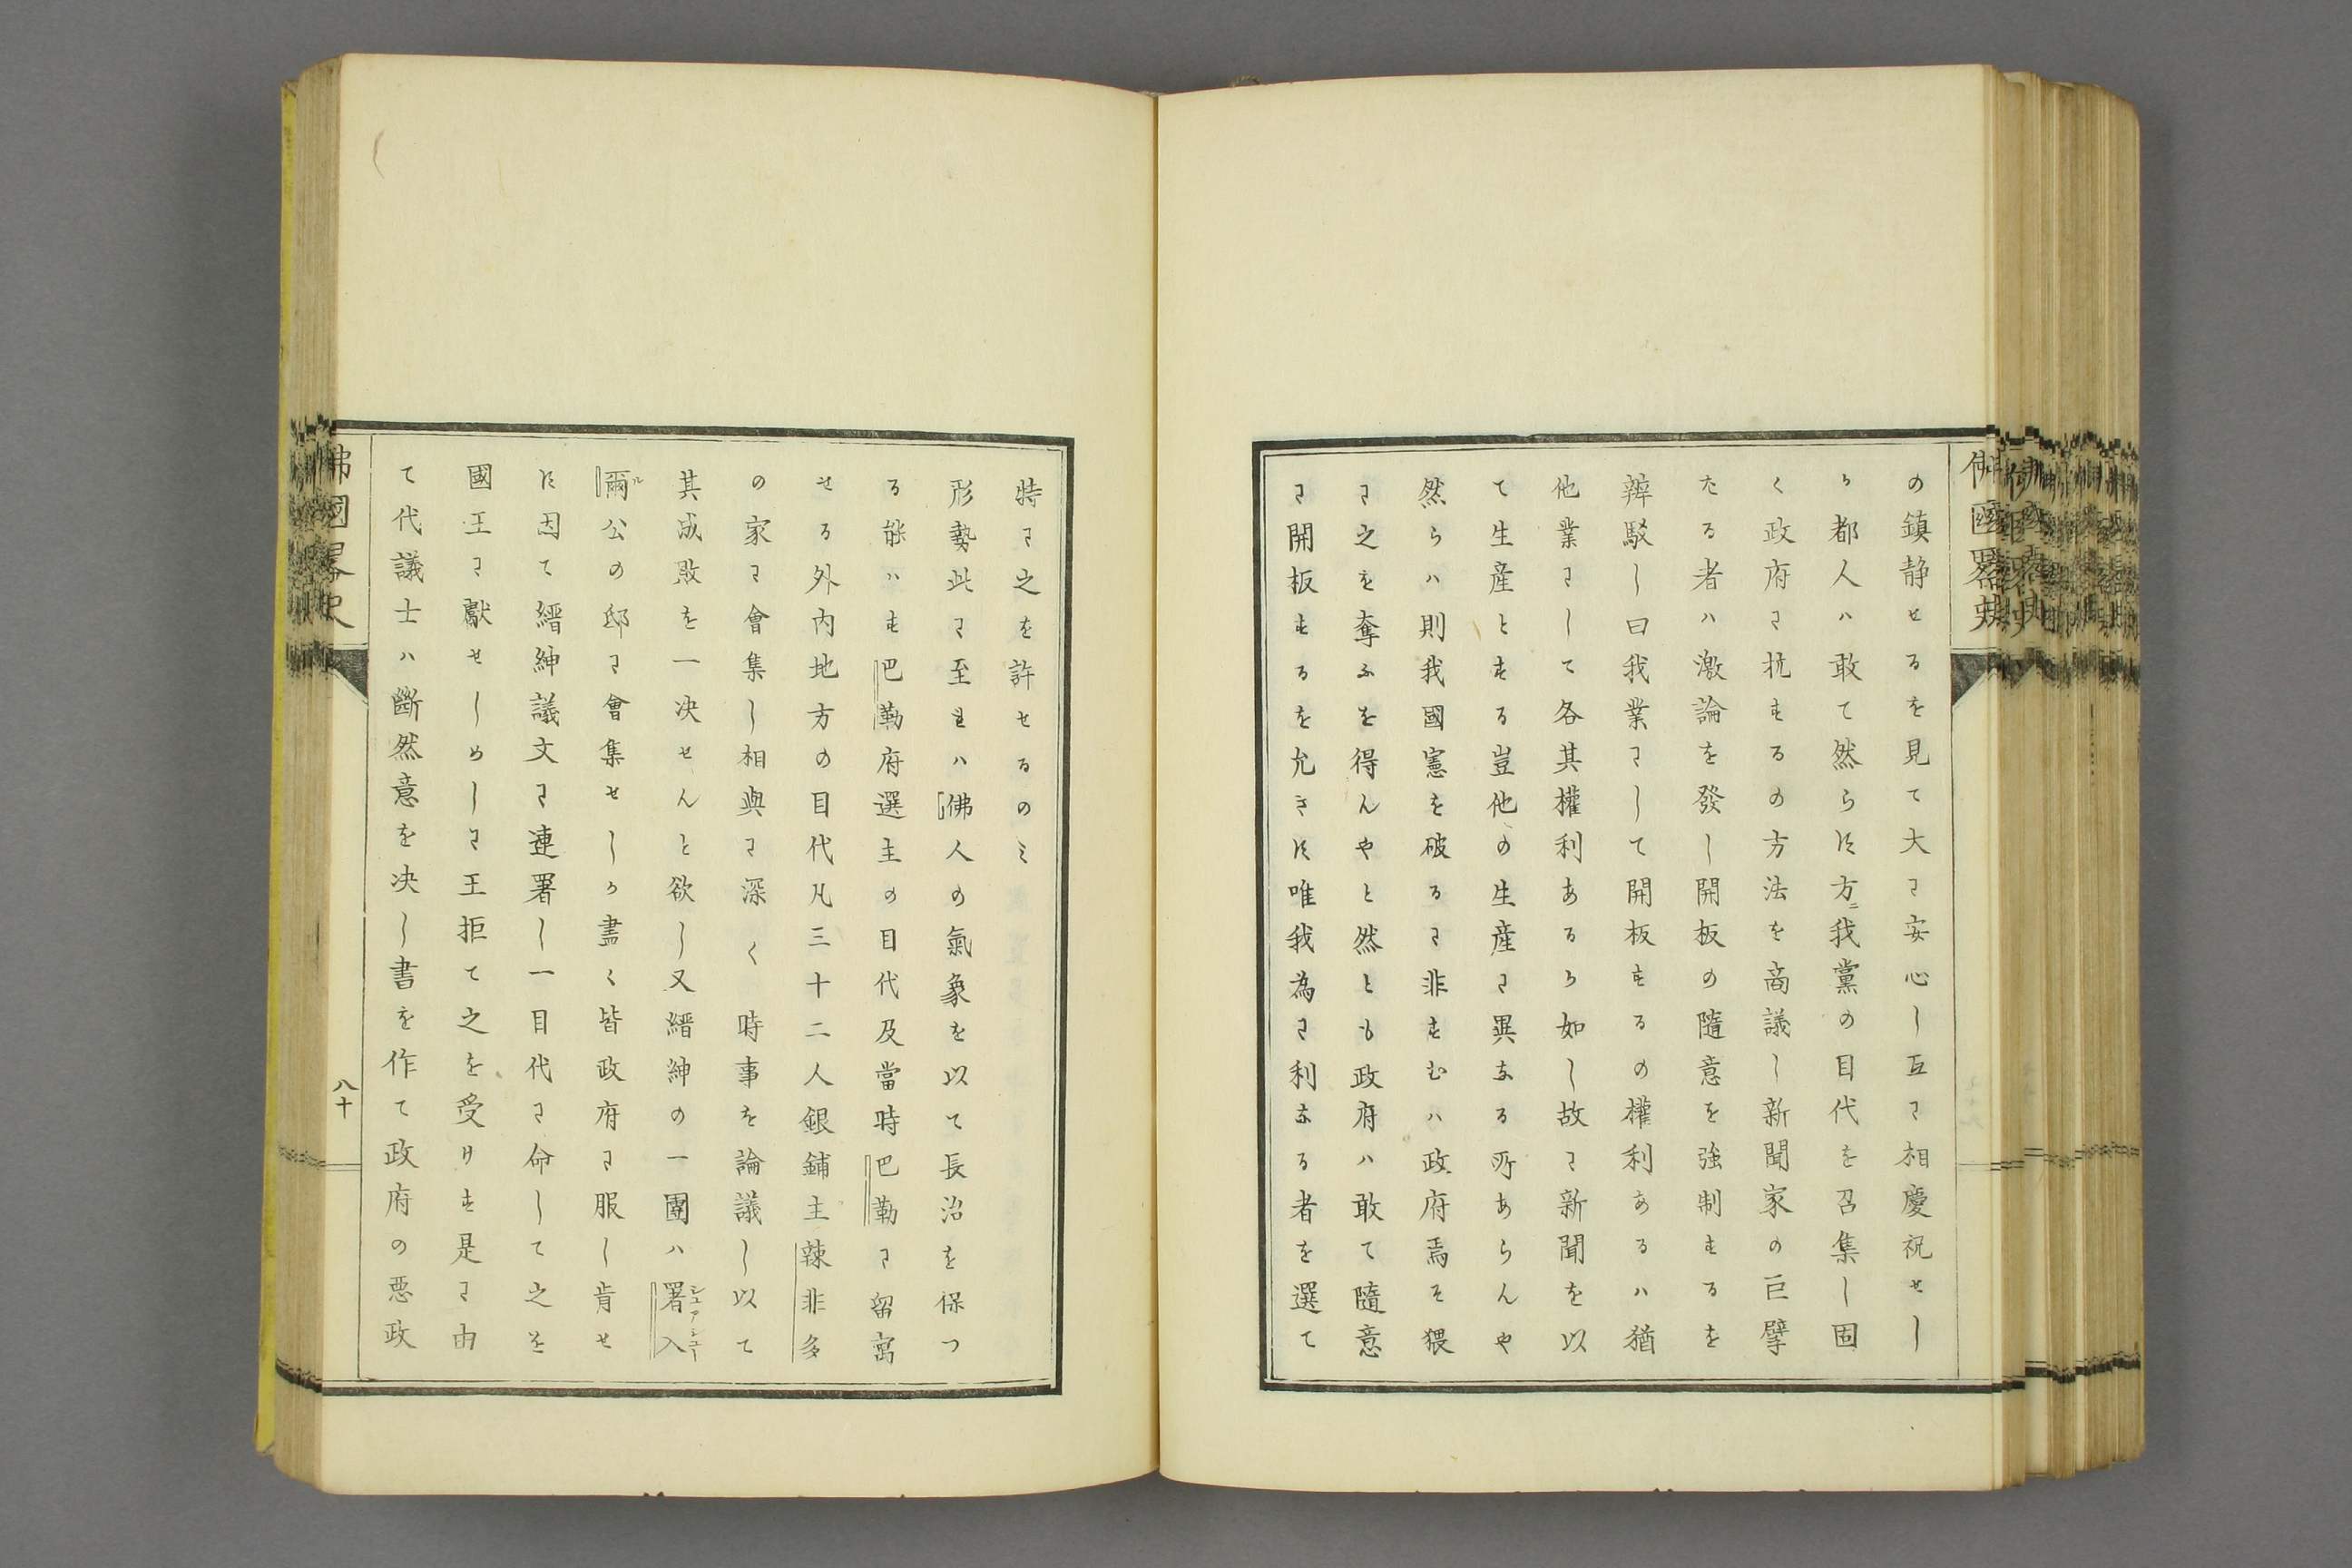 佛國畧史
の鎮静せるを見て大に安心し互に相慶祝せし
か都人ハ敢て然らす方ニ我黨の目代を召集し固
く政府に抗するの方法を商議し新聞家の巨擘
たる者ハ激論を發し開板の隨意を強制するを
辨駁し曰我業にして開板するの權利あるハ猶
他業にして各其權利あるか如し故に新聞を以
て生産とする豈他の生産に異なる所あらんや
然らハ則我國憲を破るに非すむハ政府焉そ猥
に之を奪ふを得んやと然とも政府ハ敢て隨意
に開板するを允さす唯我為に利なる者を選て
特に之を許せるのミ
形勢此に至れハ佛人の氣象を以て長治を保つ
る能ハす巴勒府選主の目代及當時巴勒に留寓
せる外内地方の目代凡三十二人銀鋪主辣非多
の家に會集し相與に深く時事を論議し以て
其成敗を一决せんと欲し又縉紳の一團ハ署入
シユアシユー
爾公の邸に會集せしか盡く皆政府に服し肯せ
ル
す因て縉紳議文に連署し一目代に命して之を
國王に獻せしめしに王拒て之を受けす是に由
て代議士ハ斷然意を决し書を作て政府の悪政
佛國畧史
八十